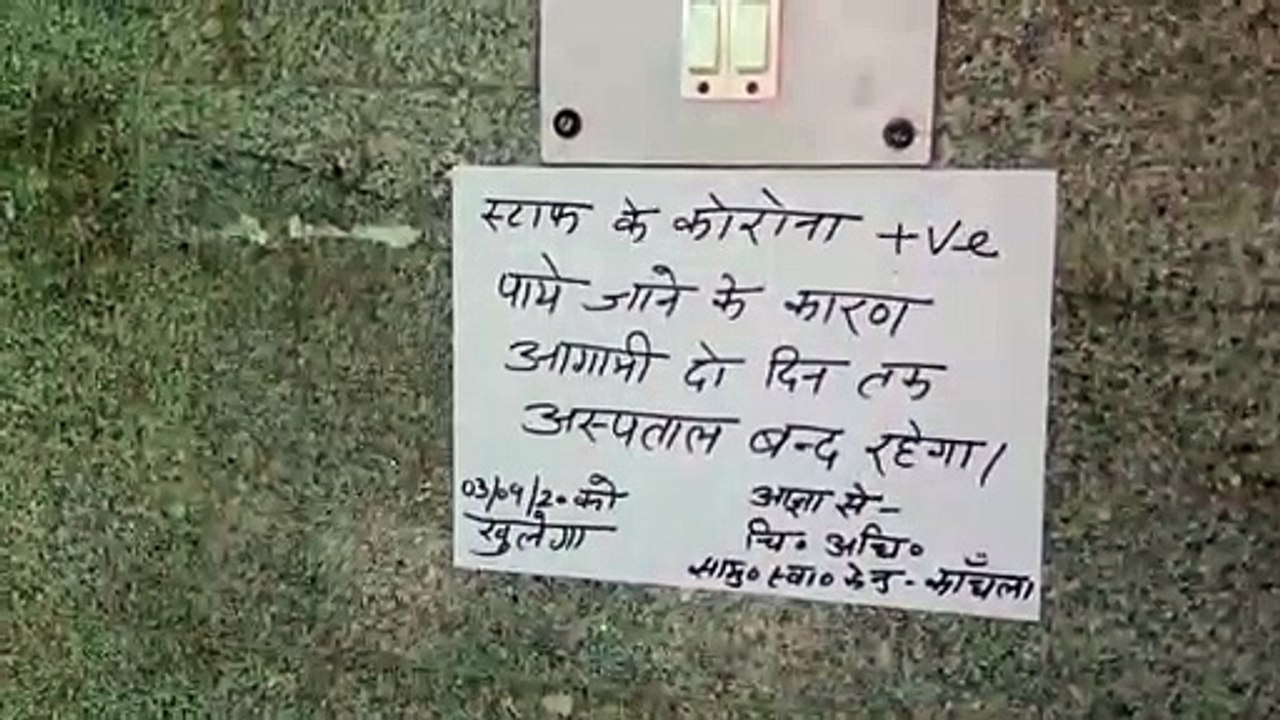 स्टाफ के कोरोना +ve
पाये जाने के कारण
आगामी दो दिन तक
अस्पताल बन्द रहेगा।
03/09/20 को
खुलेगा
आज्ञा से-
चि० अधि०
सामु० स्वा० केन्द्र - काँधला